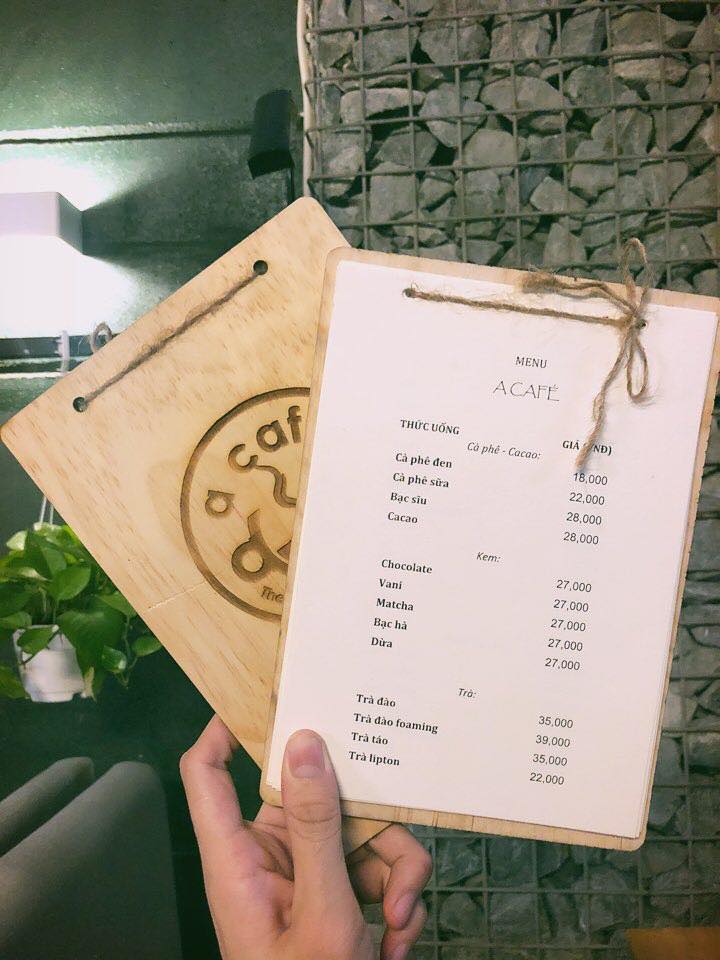 a caf
The
MENU
A CAFÉ
THỨC UỐNG GIÁ NĐ)
Cà phê - Cacao:
Cà phê đen 18,000
Cà phê sữa 22,000
Bạc sỉu 28,000
Cacao 28,000
Kem:
Chocolate 27,000
Vani 27,000
Matcha 27,000
Bạc hà 27,000
Dừa 27,000
Trà:
Trà đào 35,000
Trà đào foaming 39,000
Trà táo 35,000
Trà lipton 22,000